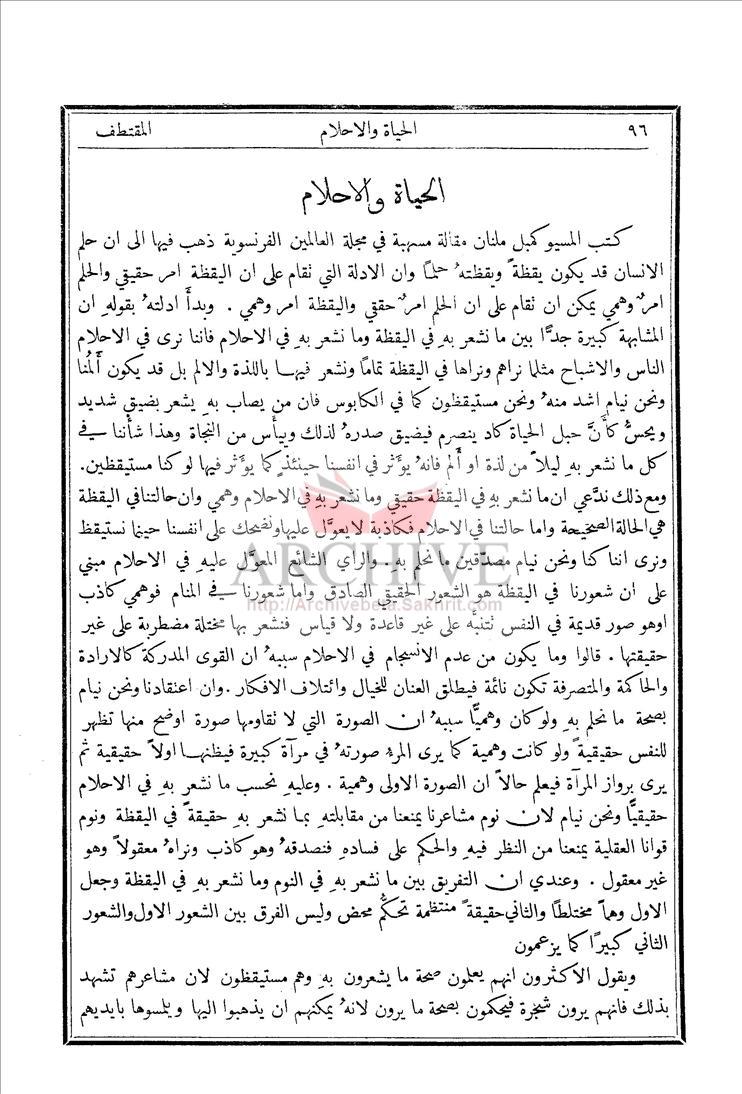 ٩٦ الحياة والاحلام المقتطف
الحياة والاحلام
كتب المسيو كمبل ملنان مقالة مسهبة في مجلة العالمين الفرنسوية ذهب فيها الى ان حلم
الانسان قد يكون يقظةً ويقظتهُ حلماً وان الادلة التي تقام على ان اليقظة امر حقيقي والحلم
امرٌ وهمي يمكن ان تقام على ان الحلم امرٌ حقيقي واليقظة امر وهمي . وبدأ ادلتهُ بقولهِ ان
المشابهة كبيرة جدًّا بين ما نشعر بهِ في اليقظة وما نشعر بهِ في الاحلام فاننا نرى في الاحلام
الناس والاشباح مثلما نراهم ونراها في اليقظة تماماً ونشعر فيها باللذة والالم بل قد يكون أَلمُنا
ونحن نيام اشد منهُ ونحن مستيقظون كما في الكابوس فان من يصاب بهِ يشعر بضيق شديد
ويحسُّ كأَنَّ حبل الحياة كاد ينصرم فيضيق صدرهُ لذلك وييأَس من النجاة وهذا شأننا في
كل ما نشعر بهِ ليلاً من لذة او أَلم فانهُ يؤَثر في انفسنا حينئذٍ كما يؤَثر فيها لو كنا مستيقظين.
ومع ذلك ندَّعي ان ما نشعر بهِ في اليقظة حقيقي وما نشعر بهِ في الاحلام وهمي وان حالتنا في اليقظة
هي الحالة الصحيحة واما حالتنا في الاحلام فكاذبة لا يعوَّل عليها ونضحك على انفسنا حينما نستيقظ
ونرى اننا كنا ونحن نيام مصدّقين ما نحلم بهِ . والرأي الشائع المعوَّل عليهِ في الاحلام مبني
على ان شعورنا في اليقظة هو الشعور الحقيقي الصادق واما شعورنا في المنام فوهمي كاذب
او هو صور قديمة في النفس تتنبَّه على غير قاعدة ولا قياس فنشعر بها مختلة مضطربة على غير
حقيقتها . قالوا وما يكون من عدم الانسجام في الاحلام سببهُ ان القوى المدركة كالارادة
والحاكمة والمتصرفة تكون نائمة فيطلق العنان للخيال وائتلاف الافكار . وان اعتقادنا ونحن نيام
بصحة ما نحلم بهِ ولو كان وهميًّا سببهُ ان الصورة التي لا تقاومها صورة اوضح منها تظهر
للنفس حقيقيةً ولو كانت وهمية كما يرى المرءُ صورتهُ في مرآة كبيرة فيظنها اولاً حقيقية ثم
يرى برواز المرآة فيعلم حالاً ان الصورة الاولى وهمية . وعليهِ نحسب ما نشعر بهِ في الاحلام
حقيقيًّا ونحن نيام لان نوم مشاعرنا يمنعنا من مقابلتهِ بما نشعر بهِ حقيقةً في اليقظة ونوم
قوانا العقلية يمنعنا من النظر فيهِ والحكم على فسادهِ فنصدقهُ وهو كاذب ونراهُ معقولاً وهو
غير معقول . وعندي ان التفريق بين ما نشعر بهِ في النوم وما نشعر بهِ في اليقظة وجعل
الاول وهماً مختلطاً والثاني حقيقةً منتظمة تحكُّم محض وليس الفرق بين الشعور الاول والشعور
الثاني كبيرًا كما يزعمون
ويقول الاكثرون انهم يعلمون صحة ما يشعرون بهِ وهم مستيقظون لان مشاعرهم تشهد
بذلك فانهم يرون شجرة فيحكمون بصحة ما يرون لانهُ يمكنهم ان يذهبوا اليها ويلمسوها بايديهم
ARCHIVE
http://Archivebeta.Sakhrit.com